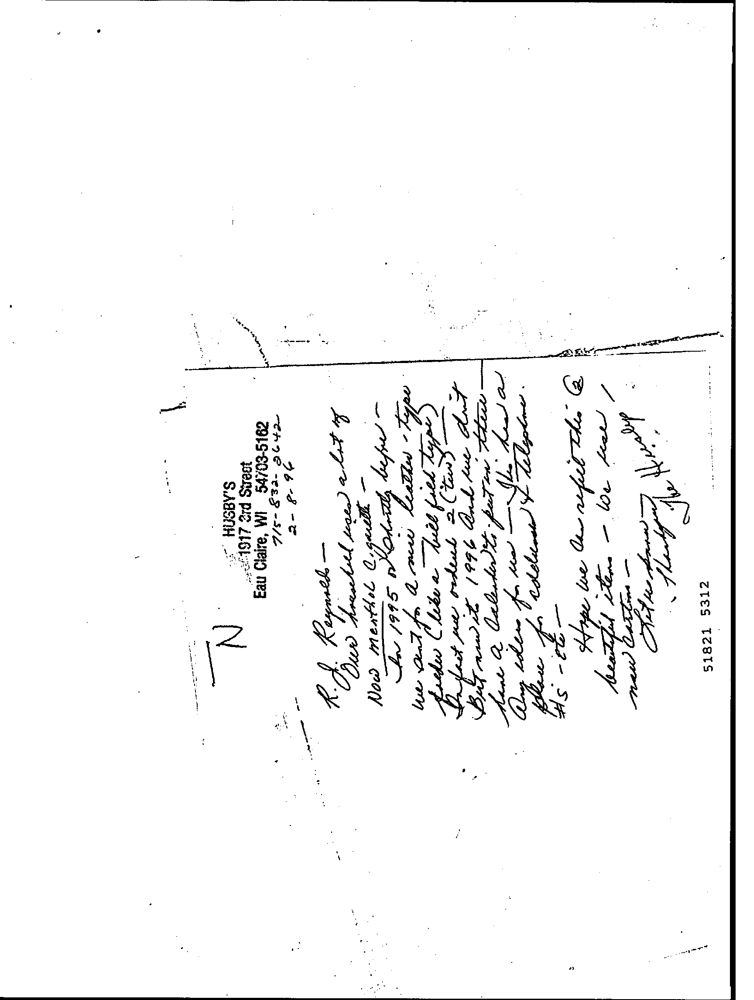 N
HUGBY'S
1917 3rd Street
Eau Claire, WI 54703-5162
715-832-2642
2-8-96
R. J. Reynolds -
Our household uses a lot of
Now menthol Cigarette -
In 1995 or shortly before -
we sent for a nice leather-type
(like a bill fold type)
Infact we ordered 2 (two) -
But now its 1996 and we don't
have a Calendar to put in there -
Any ideas for us - This has a
place for addresses & telephone
#s - etc -
Hope we can refill this 2
beautiful items - We use
now cartons -
Let us know
Thank you
The Husby's
51821 5312